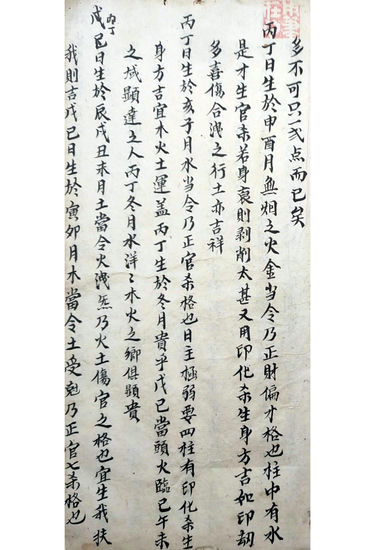 多不可只一弐点而已矣
丙丁日生於申酉月無烟之火金当令乃正財偏才格也柱中有水
是才生官杀若身衰則剥削太甚又用印化杀生身方吉如印刼
多喜傷合洩之行土亦吉祥
丙丁日生於亥子月水当令乃正官杀格也日主極弱要四柱有印化杀生
身方吉宜木火土運盖丙丁生於冬月貴乎戊已當頭火臨已午未
之域顯達之人丙丁冬月水洋〻木火之鄉俱顕貴
丙丁
戊已日生於辰戌丑未月土當令火洩炁乃火土傷官之格也宜生我扶
我則吉戊已日生於寅卯月木當令土受尅乃正官七杀格也